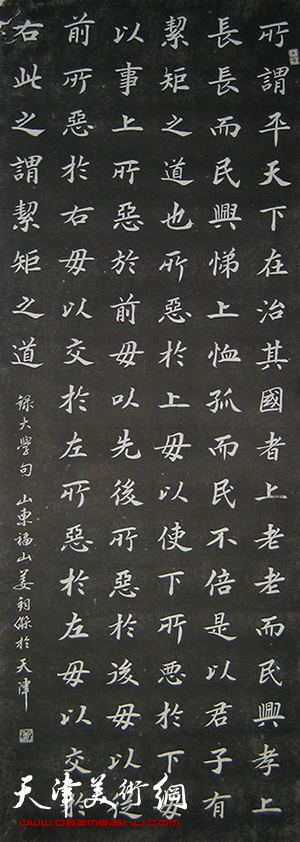 所謂平天下在治其國者上老老而民興孝上
長長而民興悌上恤孤而民不倍是以君子有
絜矩之道也所惡於上毋以使下所惡於下毋
以事上所惡於前毋以先後所惡於後毋以從
前所惡於右毋以交於左所惡於左毋以交於
右此之謂絜矩之道
錄大學句 山東福山姜於天津
天津美術網
www.022meishu.com